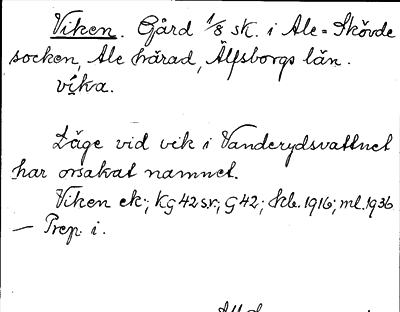 Viken. Gård 1/8 sk. i Ale-Skövde
socken, Ale härad, Älfsborgs län.
víka.
Läge vid vik i Vanderydsvattnet
har orsakat namnet.
Viken ek; Kg 42 sv.; G 42; kb. 1916; ml. 1936
— Prep. i.